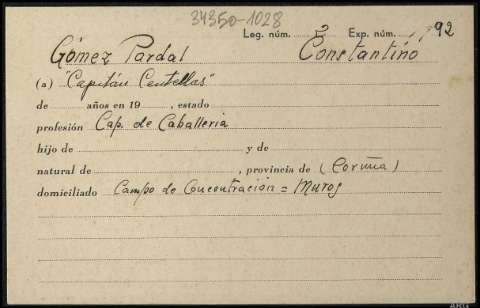 34350-1028
Leg. núm. 2 Exp. núm. 92
Gómez Pardal Constantino
(a) "Capitán Centellas"
de años en 19 , estado
profesión Cap. de Caballeria
hijo de y de
natural de , provincia de (Coruña)
domiciliado Campo de Concentración = Muros